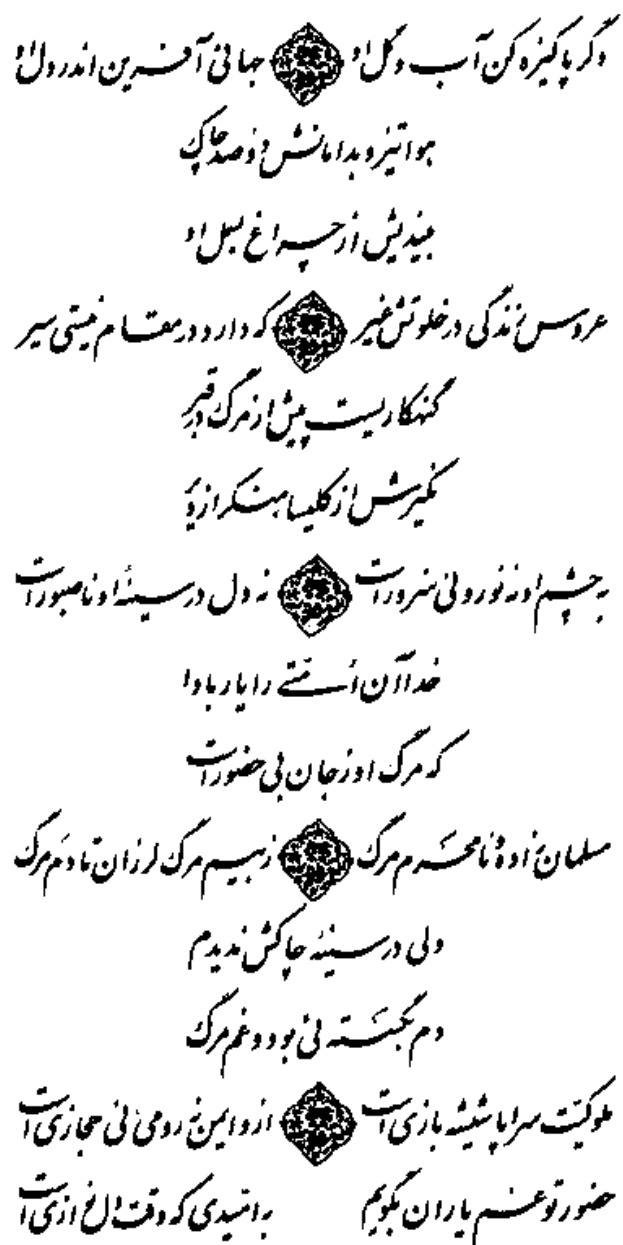 دگر پاکیزه کن آب و گل او جهانی آفرین اندر دل او
هوا تیز و بدامانش دو صد چاک
بیندیش از چراغ بسمل او
عروس زندگی در خلوتش غیر که دارد در مقام نیستی سیر
گنهکاریست پیش از مرگ در قبر
نکیرش از کلیسا منکر از دیر
به چشم او نه نور و نی سرور است نه دل در سینهٔ او ناصبور است
خدا آن اُمّتے را یار بادا
که مرگ او ز جان بی حضور است
مسلمان زادهٔ نامحرم مرگ ز بیم مرگ لرزان تا دم مرگ
ولی در سینهٔ چاکش ندیدم
دم بگسسته ئی بود و غم مرگ
ملوکیّت سراپا شیشه بازی است ازو ایمن نه رومی نی حجازی است
حضور تو غم یاران بگویم به امّیدی که وقت دلنوازی است